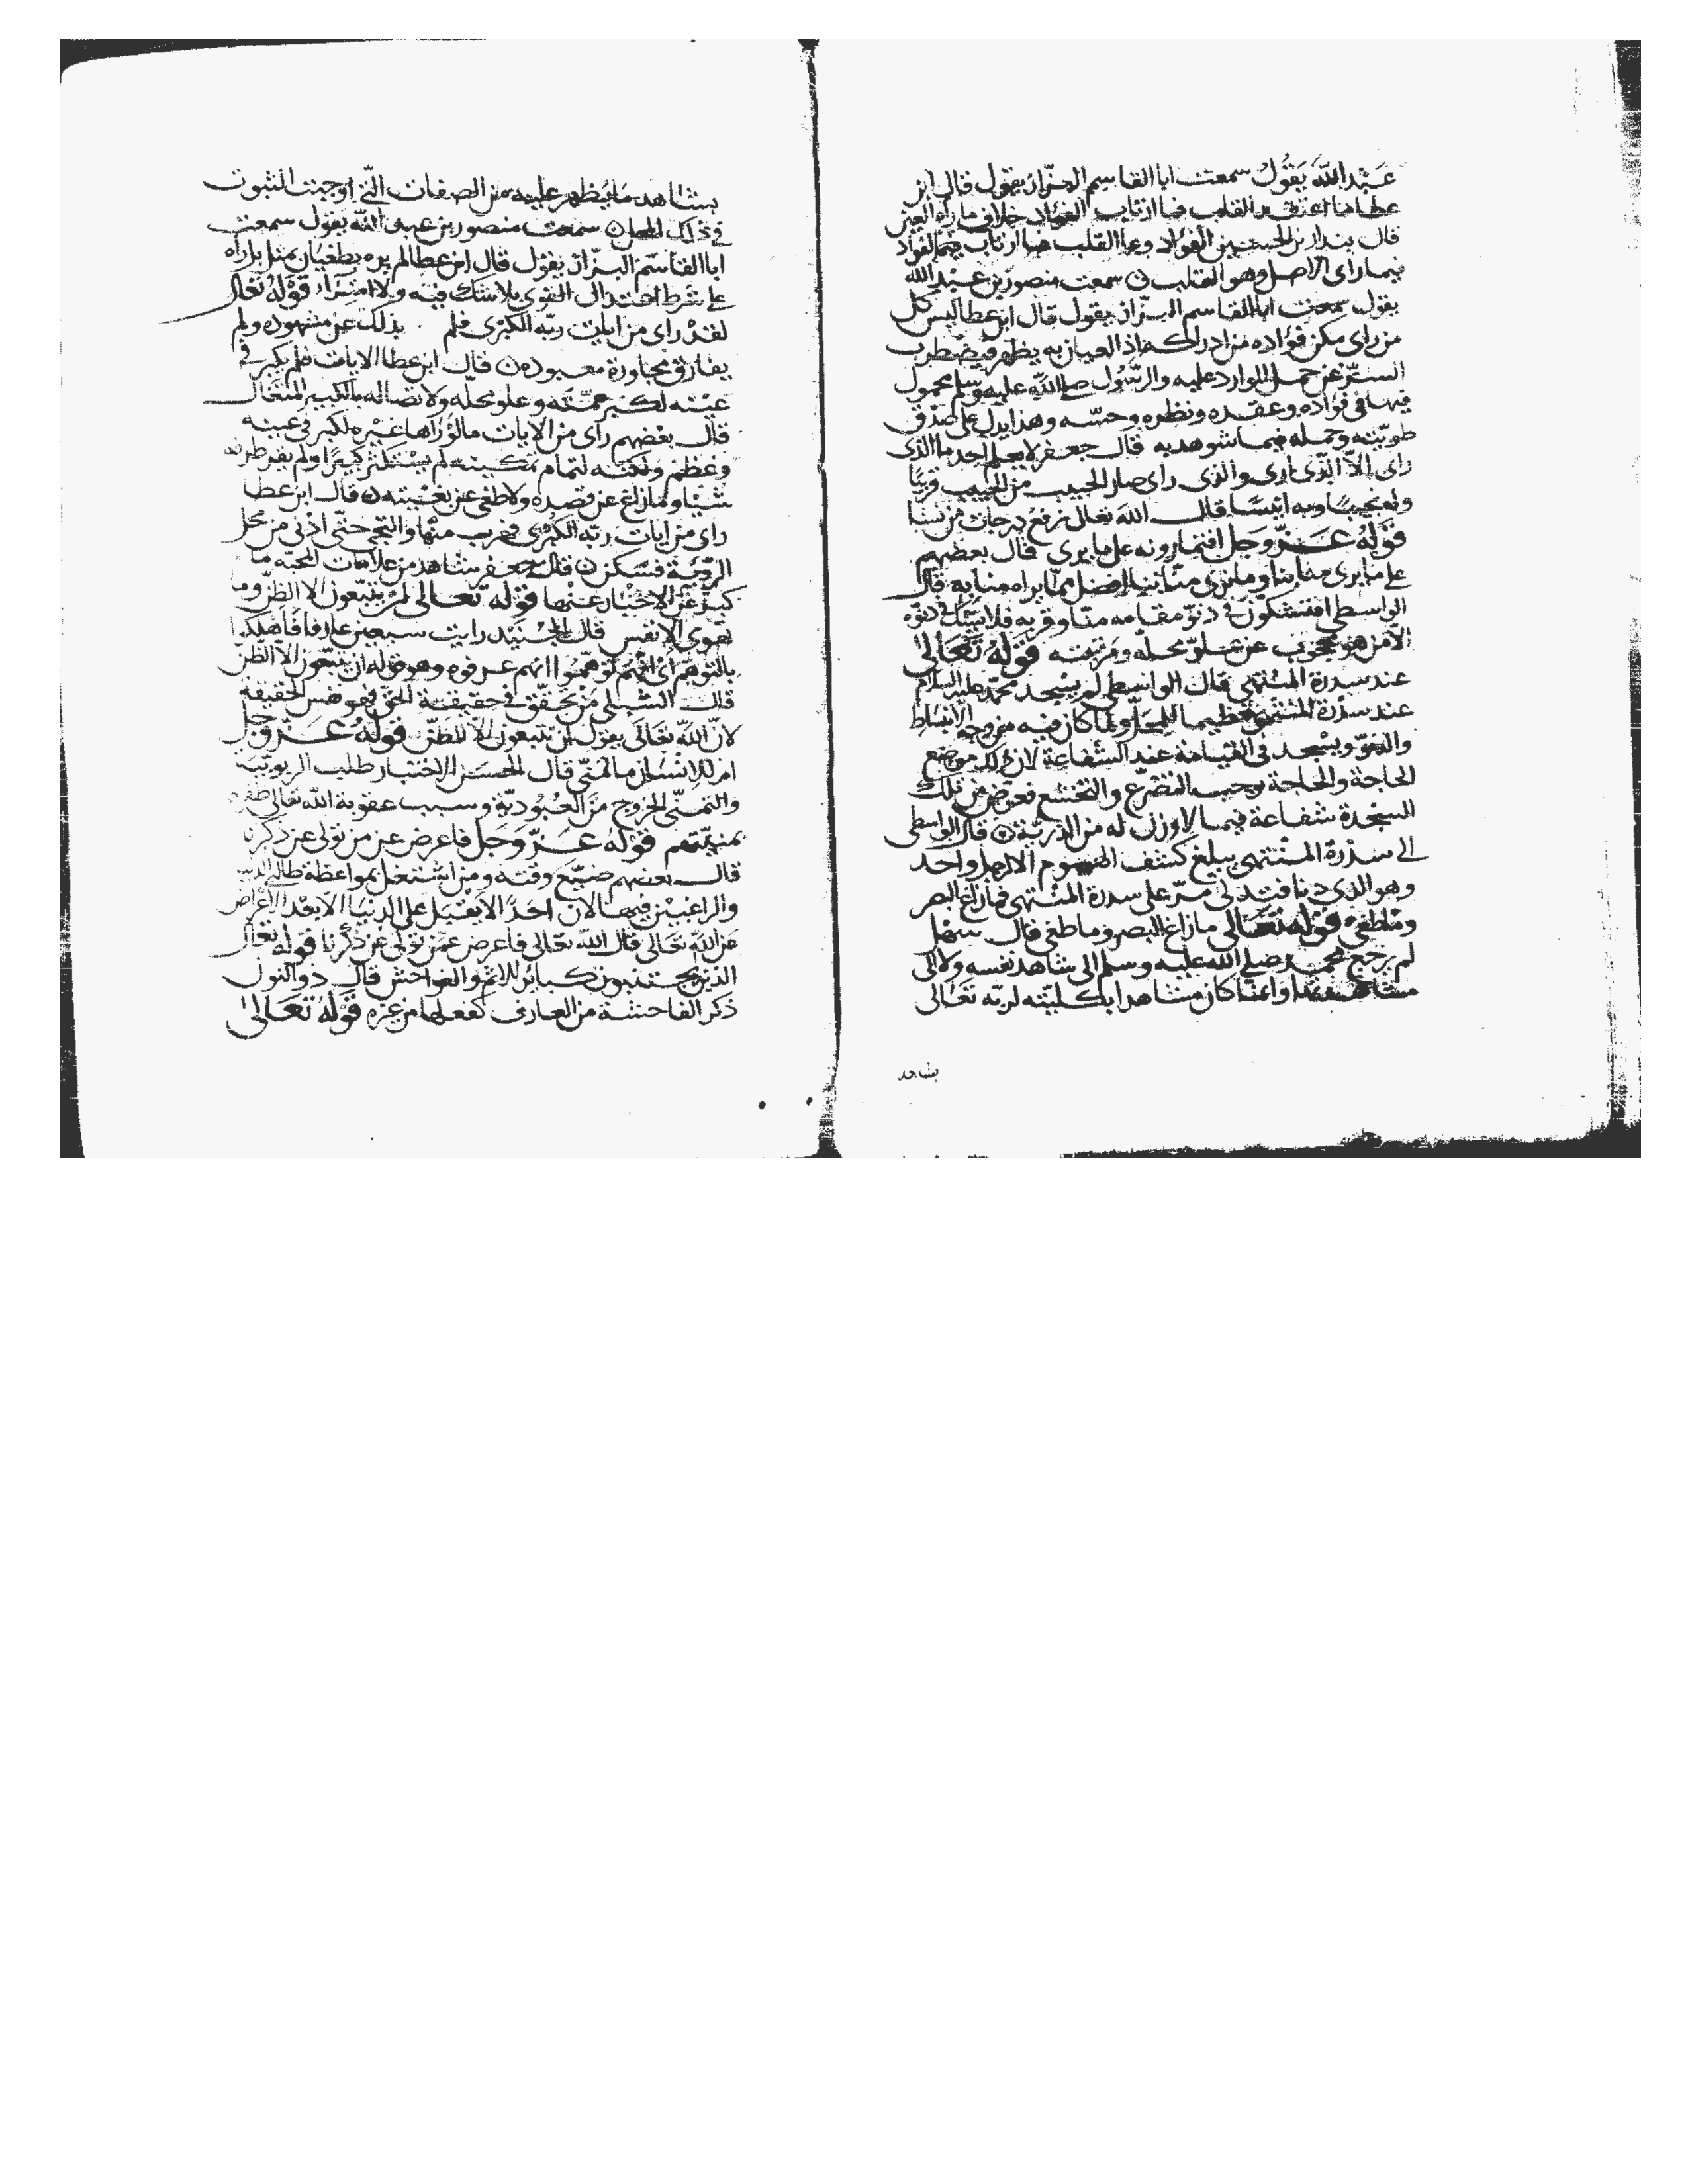 عبد الله يقول سمعت ابا القاسم البزاز يقول قال ابن
عطا ما اعتقد القلب فيما ارتاب الفؤاد خلاف ما رآه العين
قال بندار بن الحسين الفؤاد وعا القلب فيما ارتاب فيه الفؤاد
فيما راى الاصل وهو القلب سمعت منصور بن عبد الله
يقول سمعت ابا القاسم البزاز يقول قال ابن عطا ليس كل
من راى مكن فؤاده من ادراكه اذ العيان به يظهر فيضطرب
السر عن حمل الوارد عليه والرسول صلى الله عليه وسلم محمول
فيها في فؤاده وعقده ونظره وحسه وهذا يدل على صدق
طويته وحمله فيما شوهد به قال جعفر لا يعلم احد ما الذي
راى الا الذى ارى والذى راى صار الحبيب من الحبيب قريبا
وله نجيبا وبه انيسا قال الله تعالى نرفع درجات من نشا
قوله عز وجل افتمارونه على ما يرى قال بعضهم
على ما يرى منا بنا وما نرى منا بنا افضل مما يراه منا به قال
الواسطى افتشكون في دنو مقامه منا وقربه فلا يشك في دنوه
الا من هو محجوب عن علو محله ومرتبته قوله تعالى
عند سدرة المنتهى قال الواسطي لم يسجد محمد عليه السلام
عند سدرة المنتهى تعظيما للمحل ولما كان فيه من وجه الانبساط
والدنو ويسجد في القيامة عند الشفاعة لان ذلك موضع
الحاجة والحاجة توجب التضرع والتخشع فعوض من تلك
السجدة شفاعة فيما لا وزن له من الذرية قال الواسطى
الى سدرة المنتهى يبلغ كشف الهموم الا رجل واحد
وهو الذي دنا فتدلى مر على سدرة المنتهى فما زاغ البصر
وما طغى قوله تعالى ما زاغ البصر وما طغى قال سهل
لم يرجع محمد صلى الله عليه وسلم الى شاهد نفسه ولا الى
مشاهدتها وانما كان مشاهدا بكليته لربه تعالى
يشاهد
يشاهد ما يظهر عليه من الصفات التي اوجبت الثبوت
في ذلك المحل سمعت منصور بن عبد الله يقول سمعت
ابا القاسم البزاز يقول قال ابن عطا لم يره بطغيان بمنا بل رآه
على شرط اعتدال القوى بلا شك فيه ولا امتراء قوله تعالى
لقد راى من ايات ربه الكبرى فلم يذلك عن مشهوده ولم
يفارق مجاورة معبوده قال ابن عطا الايات فلم يكبر في
عينه لكبر همته وعلو محله ولاتصاله بالكبير المتعال
قال بعضهم راى من الايات ما لو رآها غيره لكبر في عينه
وعظم ولكنه لتمام تمكينه لم يستكثر كبيرا ولم يغير طرفه
شيئا ولما زاغ عن قصده ولا طغى عن بغيته قال ابن عطا
راى من ايات ربه الكبرى فهرب منها والتجى حتى ادنى من محل
الرؤية فسكن قال جعفر شاهد من علامات المحبة ما
كبر عن الاخبار عنها قوله تعالى ان يتبعون الا الظن وما
تهوى الانفس قال الجنيد رايت سبعين عارفا قد هلكوا
بالتوهم اى انهم توهموا انهم عرفوه وهو قوله ان يتبعون الا الظن
قال الشبلي من تحقق في حقيقة الحق فهو ضمن الحقيقة
لان الله تعالى يقول ان يتبعون الا الظن قوله عز وجل
ام للانسان ما تمنى قال الحسين الاختيار طلب الربوبية
والتمنى الخروج من العبودية وسبب عقوبة الله تعالى
تمنيتهم قوله عز وجل فاعرض عن من تولى عن ذكرنا
قال بعضهم ضيع وقته ومن اشتغل بمواعظة طالبي الدنيا
والراغبين فيها لان احدا لا يقبل على الدنيا الا بعد الاعراض
عن الله تعالى قال الله تعالى فاعرض عمن تولى عن ذكرنا قوله تعالى
الذين يجتنبون كبائر الاثم والفواحش قال ذو النون
ذكر الفاحشة من العارف كفعلها من غيره قوله تعالى